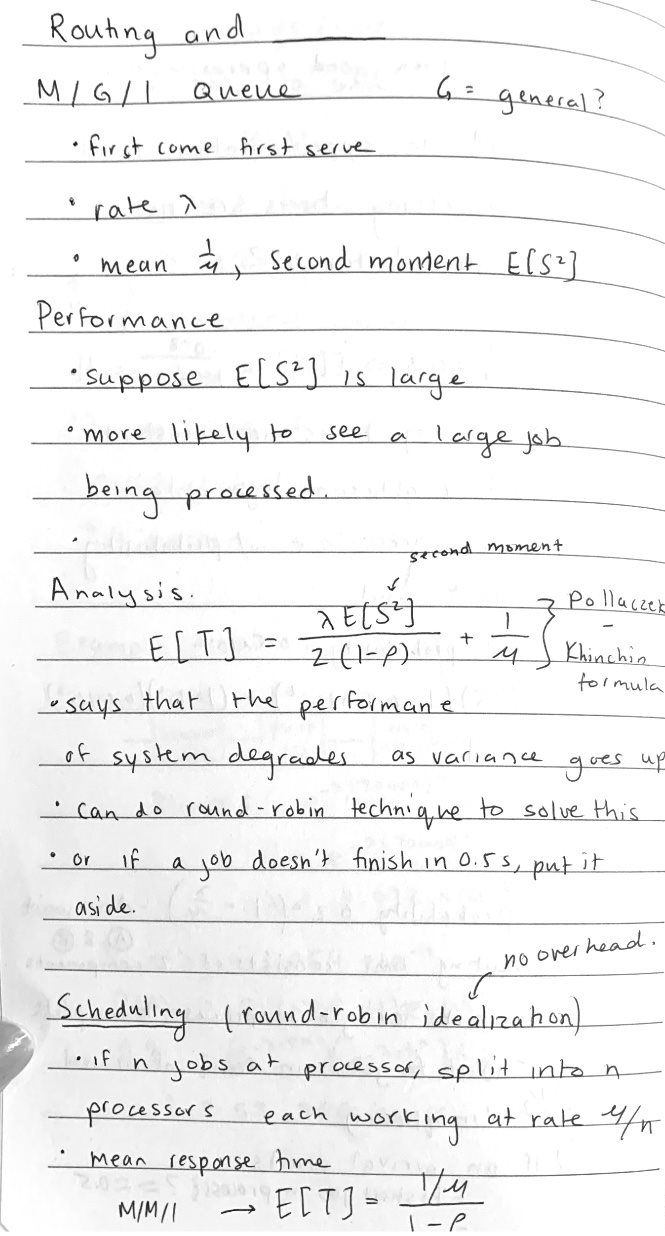 Routing and ______
M/G/1 Queue G = general?
• first come first serve
• rate λ
• mean 1/μ, second moment E[S²]
Performance
• suppose E[S²] is large
• more likely to see a large job
being processed.
•
second moment
↓
Analysis.
E[T] = λE[S²] / 2(1-ρ) + 1/μ } Pollaczek - Khinchin formula
• says that the performane
of system degrades as variance goes up
• can do round-robin technique to solve this
• or if a job doesn't finish in 0.5s, put it
aside.
no overhead.
Scheduling (round-robin idealization)
• if n jobs at processor, split into n
processors each working at rate μ/n
• mean response time
M/M/1 → E[T] = 1/μ / 1-ρ